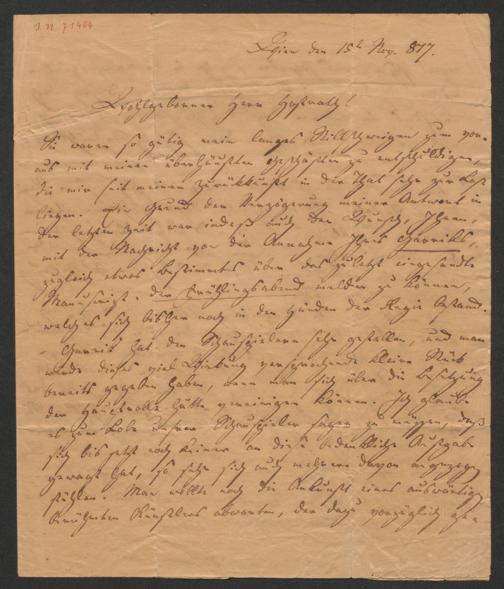 I.N. 71484
Wien den 15t Nov. 817.
Wohlgeborner Herr Hofrath!
Sie waren so gütig mein langes Stillschweigen zum vor-
aus mit meinen überhäuften Geschäften zu entschuldigen,
die mir seit meiner Zurückkunft in der That sehr zur Last
liegen. Der Grund der Verzögerung meiner Antwort in
der letzten Zeit war indeß auch der Wunsch, Ihnen,
mit der Nachricht von der Annahme Ihres Garriks,
zugleich etwas bestimmtes über das zuletzt eingesandte
Manuscript: der Frühlingsabend, melden zu können,
welches sich bisher noch in den Händen der Regie befand.
Garrik hat den Schauspielern sehr gefallen, und man
würde dieses viel Wirkung versprechende kleine Stück
bereits gegeben haben, wenn man sich über die Besetzung
der Hauptrolle hätte vereinigen können. Ich glaube
es zum Lobe unserer Schauspieler sagen zu müssen, daß
sich bis jetzt noch keiner an diese bedenkliche Aufgabe
gewagt hat, so sehr sich auch mehrere davon angezogen
fühlen. Man wollte noch die Ankunft eines auswärtigen
berühmten Künstlers abwarten, der dazu vorzüglich ge-